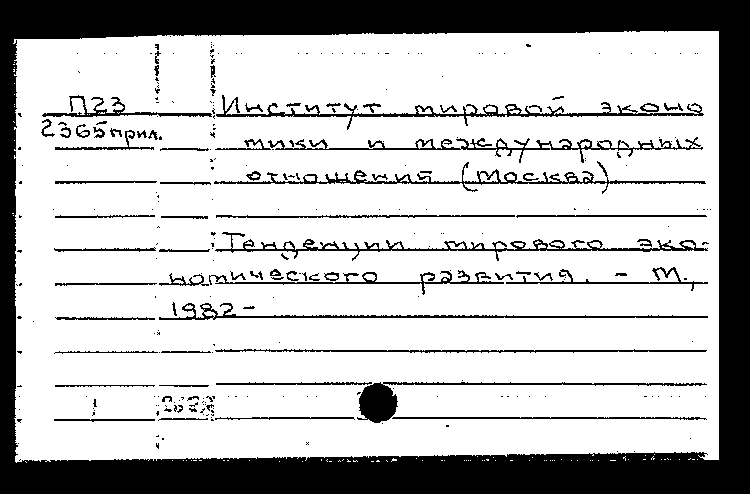 П23 Институт мировой эконо
2365прил. мики и международных
отношений (Москва)
Тенденции мирового эко-
номического развития. - М.,
1982-
1